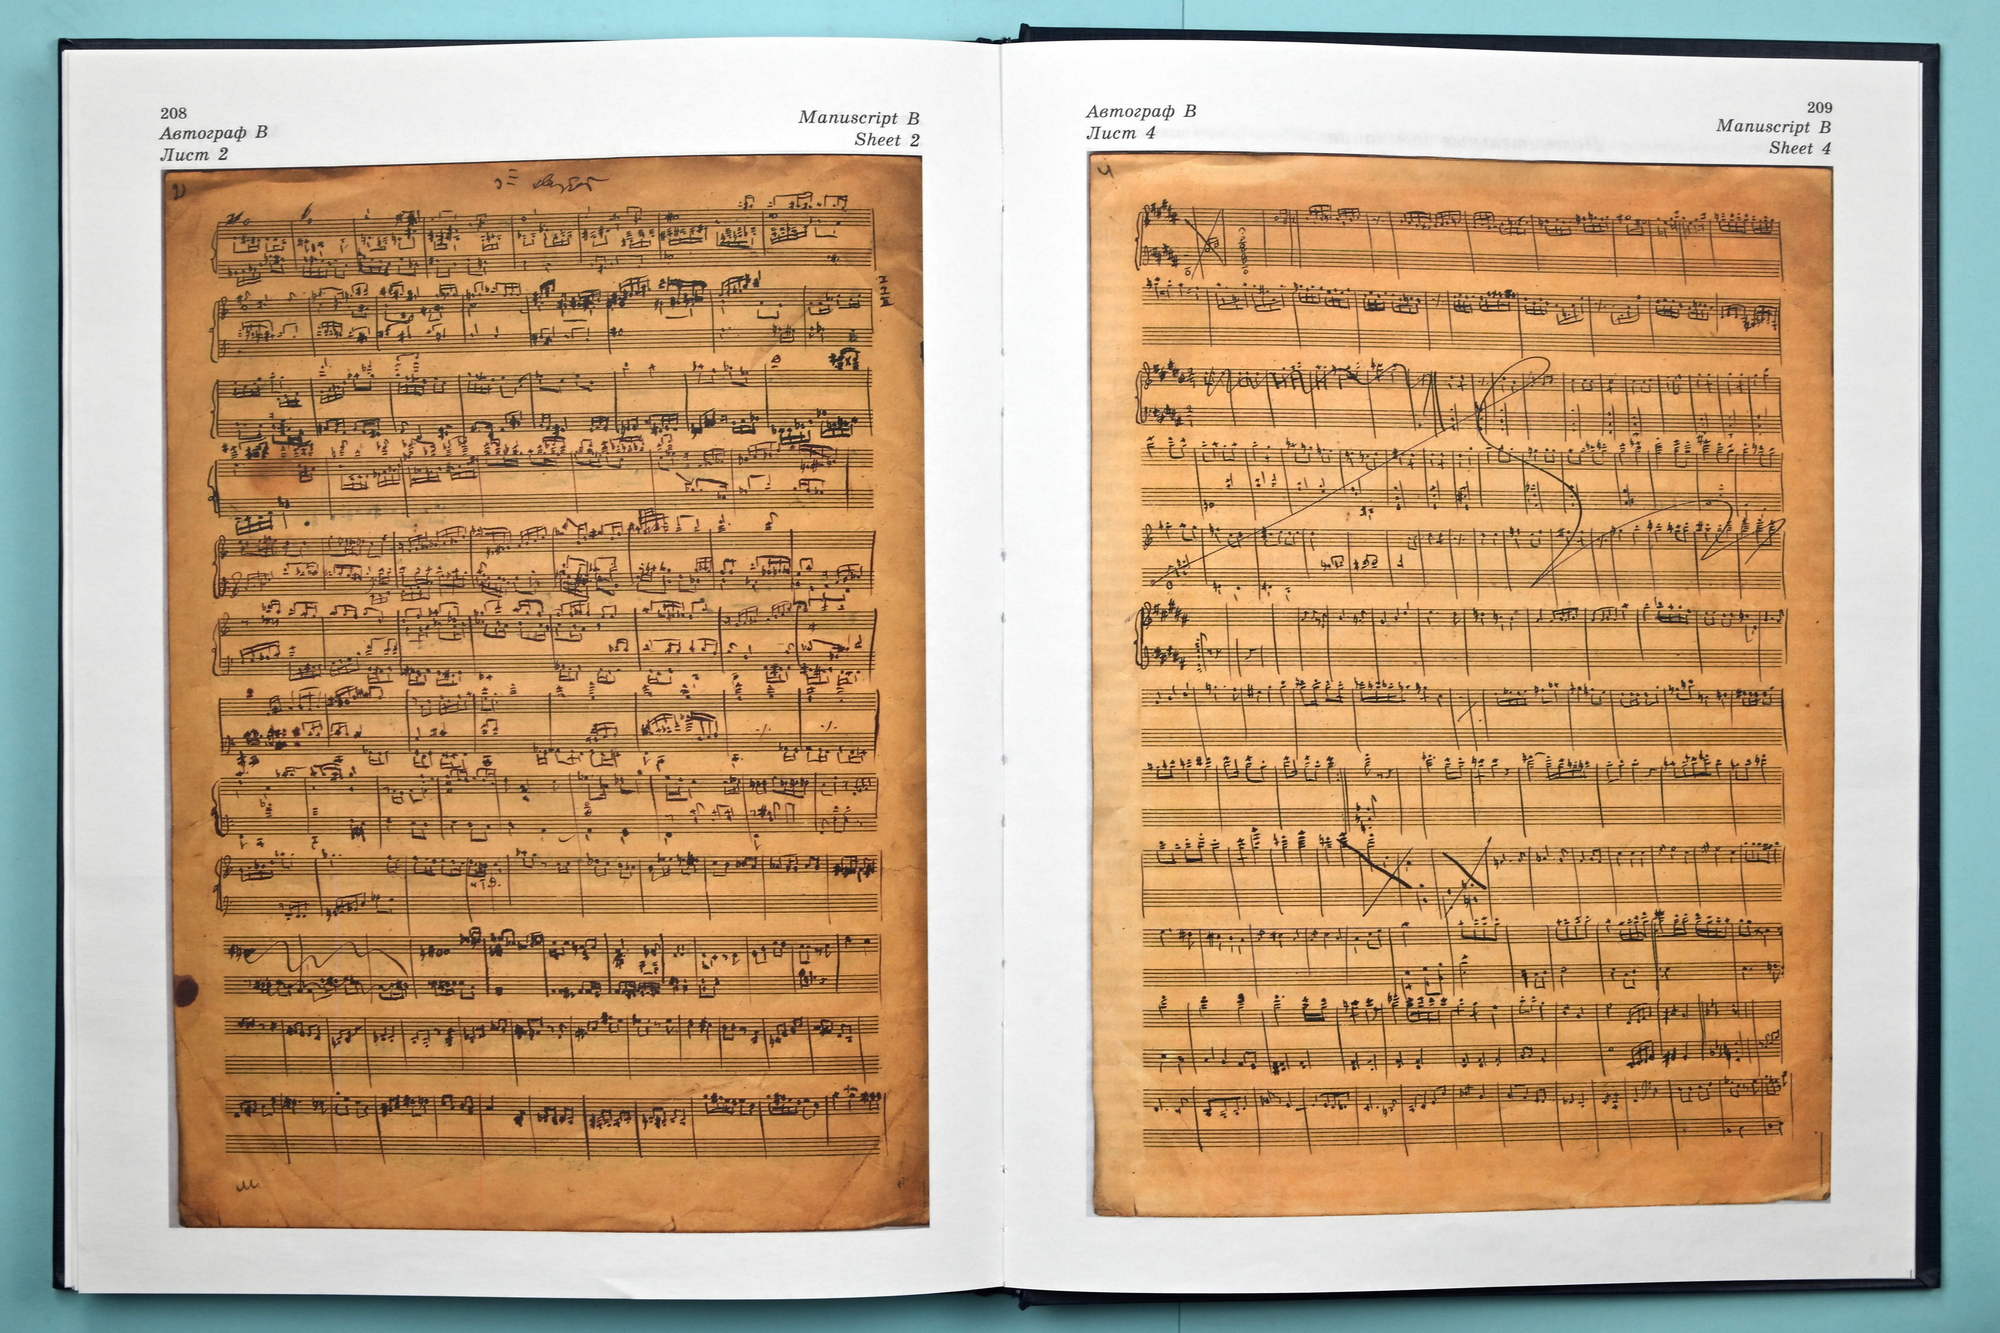 208
Автограф В
Лист 2
Manuscript B
Sheet 2
2
Автограф В
Лист 4
209
Manuscript B
Sheet 4
4